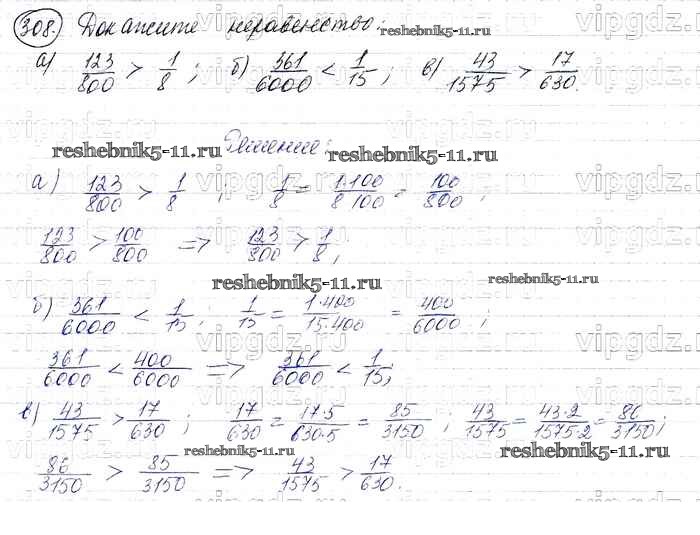 308. Докажите неравенство: reshebnik5-11.ru
а) 123/800 > 1/8 ; б) 361/6000 < 1/15 ; в) 43/1575 > 17/630.
Решение:
reshebnik5-11.ru reshebnik5-11.ru
а) 123/800 > 1/8 ; 1/8 = 1·100/8·100 = 100/800 ;
123/800 > 100/800 => 123/800 > 1/8 ;
reshebnik5-11.ru reshebnik5-11.ru
б) 361/6000 < 1/15 ; 1/15 = 1·400/15·400 = 400/6000 ;
361/6000 < 400/6000 => 361/6000 < 1/15 ;
в) 43/1575 > 17/630 ; 17/630 = 17·5/630·5 = 85/3150 ; 43/1575 = 43·2/1575·2 = 86/3150 ;
reshebnik5-11.ru reshebnik5-11.ru
86/3150 > 85/3150 => 43/1575 > 17/630.